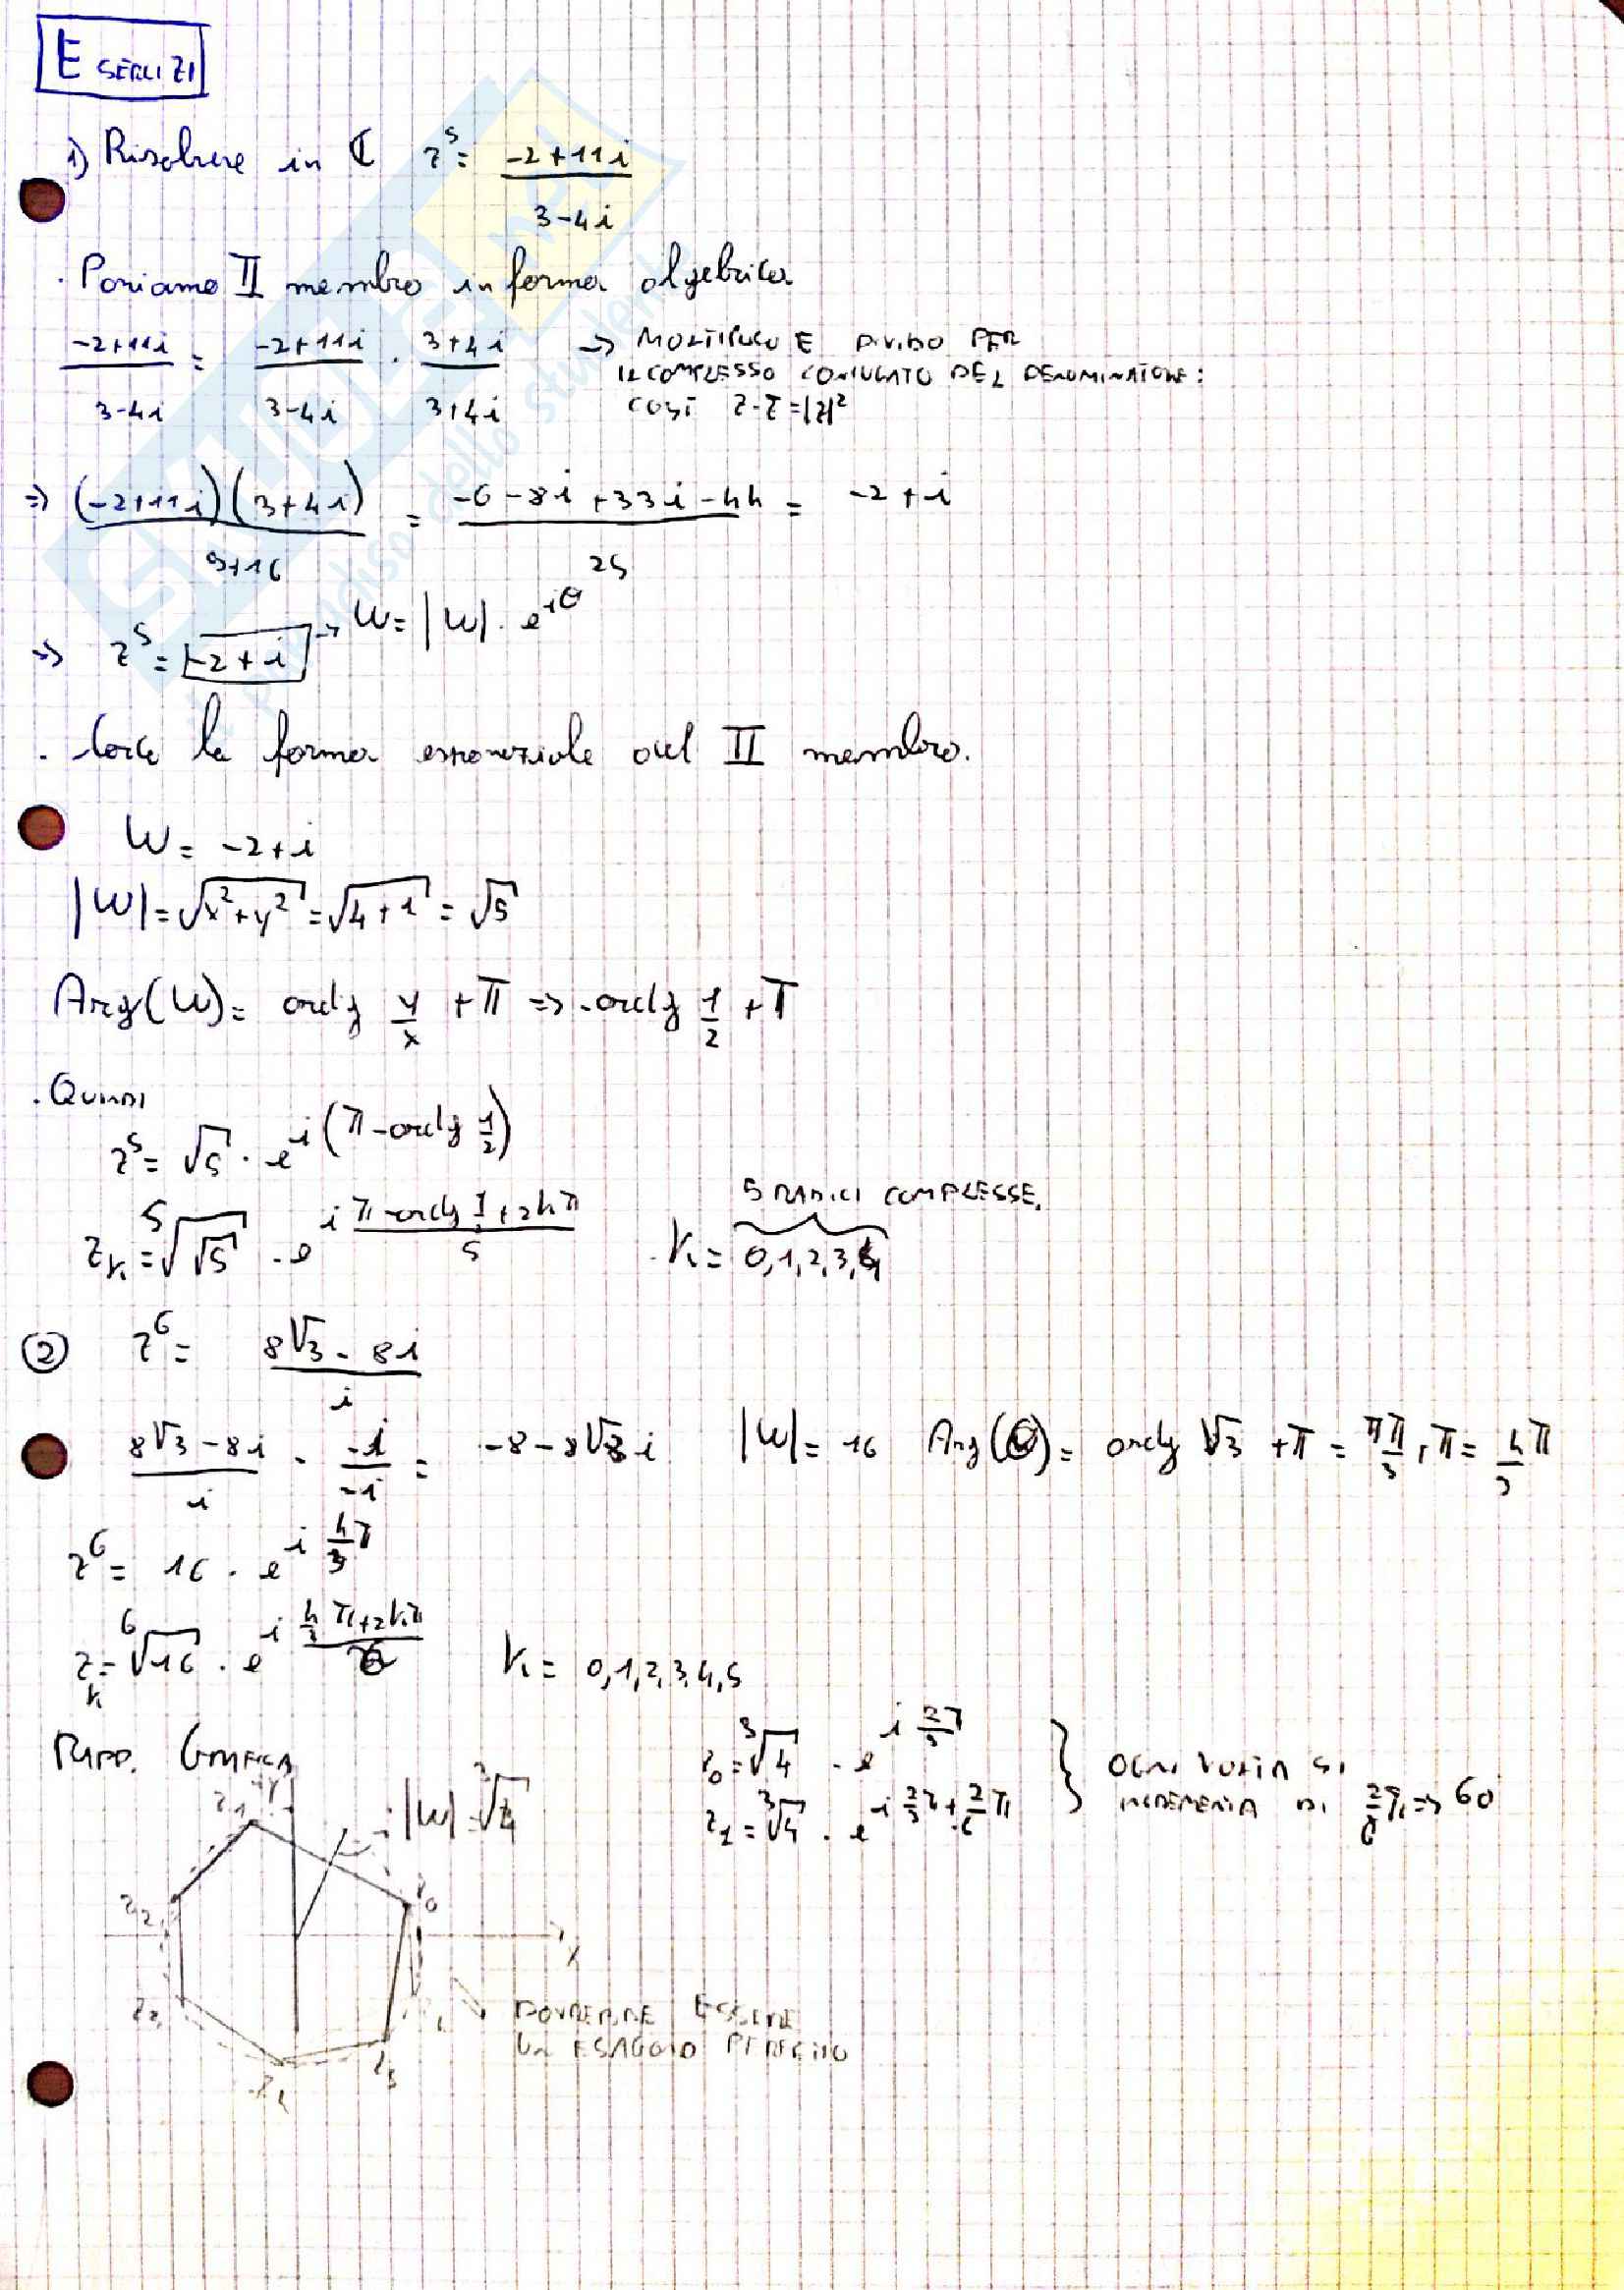 ESERCIZI
1) Risolvere in ℂ z⁵ = (-2+11i)/(3-4i)
· Poniamo II membro in forma algebrica
(-2+11i)/(3-4i) = (-2+11i)/(3-4i) · (3+4i)/(3+4i) → MOLTIPLICO E DIVIDO PER
IL COMPLESSO CONIUGATO DEL DENOMINATORE:
COSÌ z·z̄ = |z|²
⇒ (-2+11i)(3+4i)/(9+16) = (-6-8i+33i-44)/25 = -2+i
⇒ z⁵ = -2+i → W = |W| · e^(iθ)
· Cerco la forma esponenziale del II membro.
W = -2+i
|W| = √(x²+y²) = √(4+1) = √5
Arg(W) = arctg y/x + π ⇒ -arctg 1/2 + π
· QUINDI
z⁵ = √5 · e^(i(π-arctg 1/2))
5 RADICI COMPLESSE.
z_k = ⁵√(√5) · e^(i (π-arctg 1/2+2kπ)/5) k = 0,1,2,3,4
② z⁶ = (8√3 - 8i)/i
(8√3-8i)/i · (-i)/(-i) = -8-8√3i |W| = 16 Arg(θ) = arctg √3 + π = π/3 + π = 4/3 π
z⁶ = 16 · e^(i 4/3 π)
z_k = ⁶√16 · e^(i (4/3 π+2kπ)/6) k = 0,1,2,3,4,5
RAPP. GRAFICA
z₀ = ³√4 · e^(i 2/9 π)
z₁ = ³√4 · e^(i 2/9 π + 2/6 π)
OGNI VOLTA SI
INCREMENTA DI 2/6 π ⇒ 60
y
z₁
|W| = ³√4
z₀
z₂
x
z₃
z₄
z₅
DOVREBBE ESSERE
UN ESAGONO PERFETTO